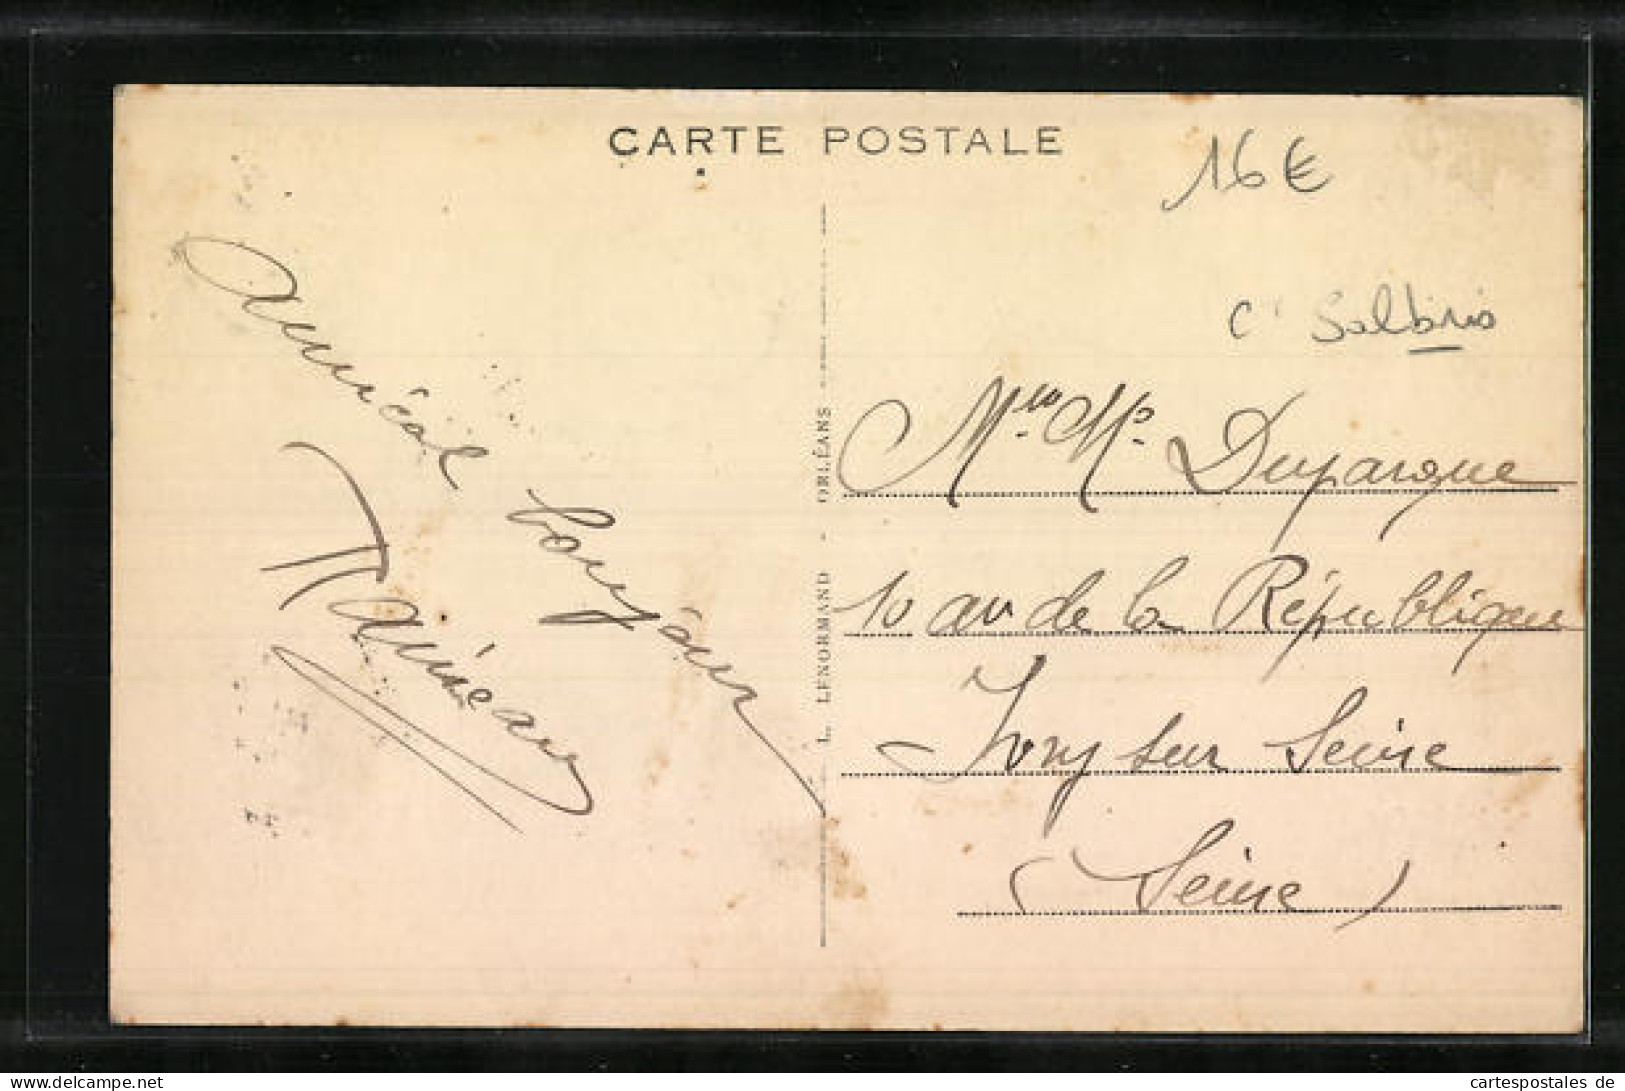 CARTE POSTALE
16€
C' Salbris
Amical bonjour
L. LENORMAND - ORLÉANS
Mlle Me Duparque
10 av de la République
Ivry sur Seine
(Seine)
cartespostales de